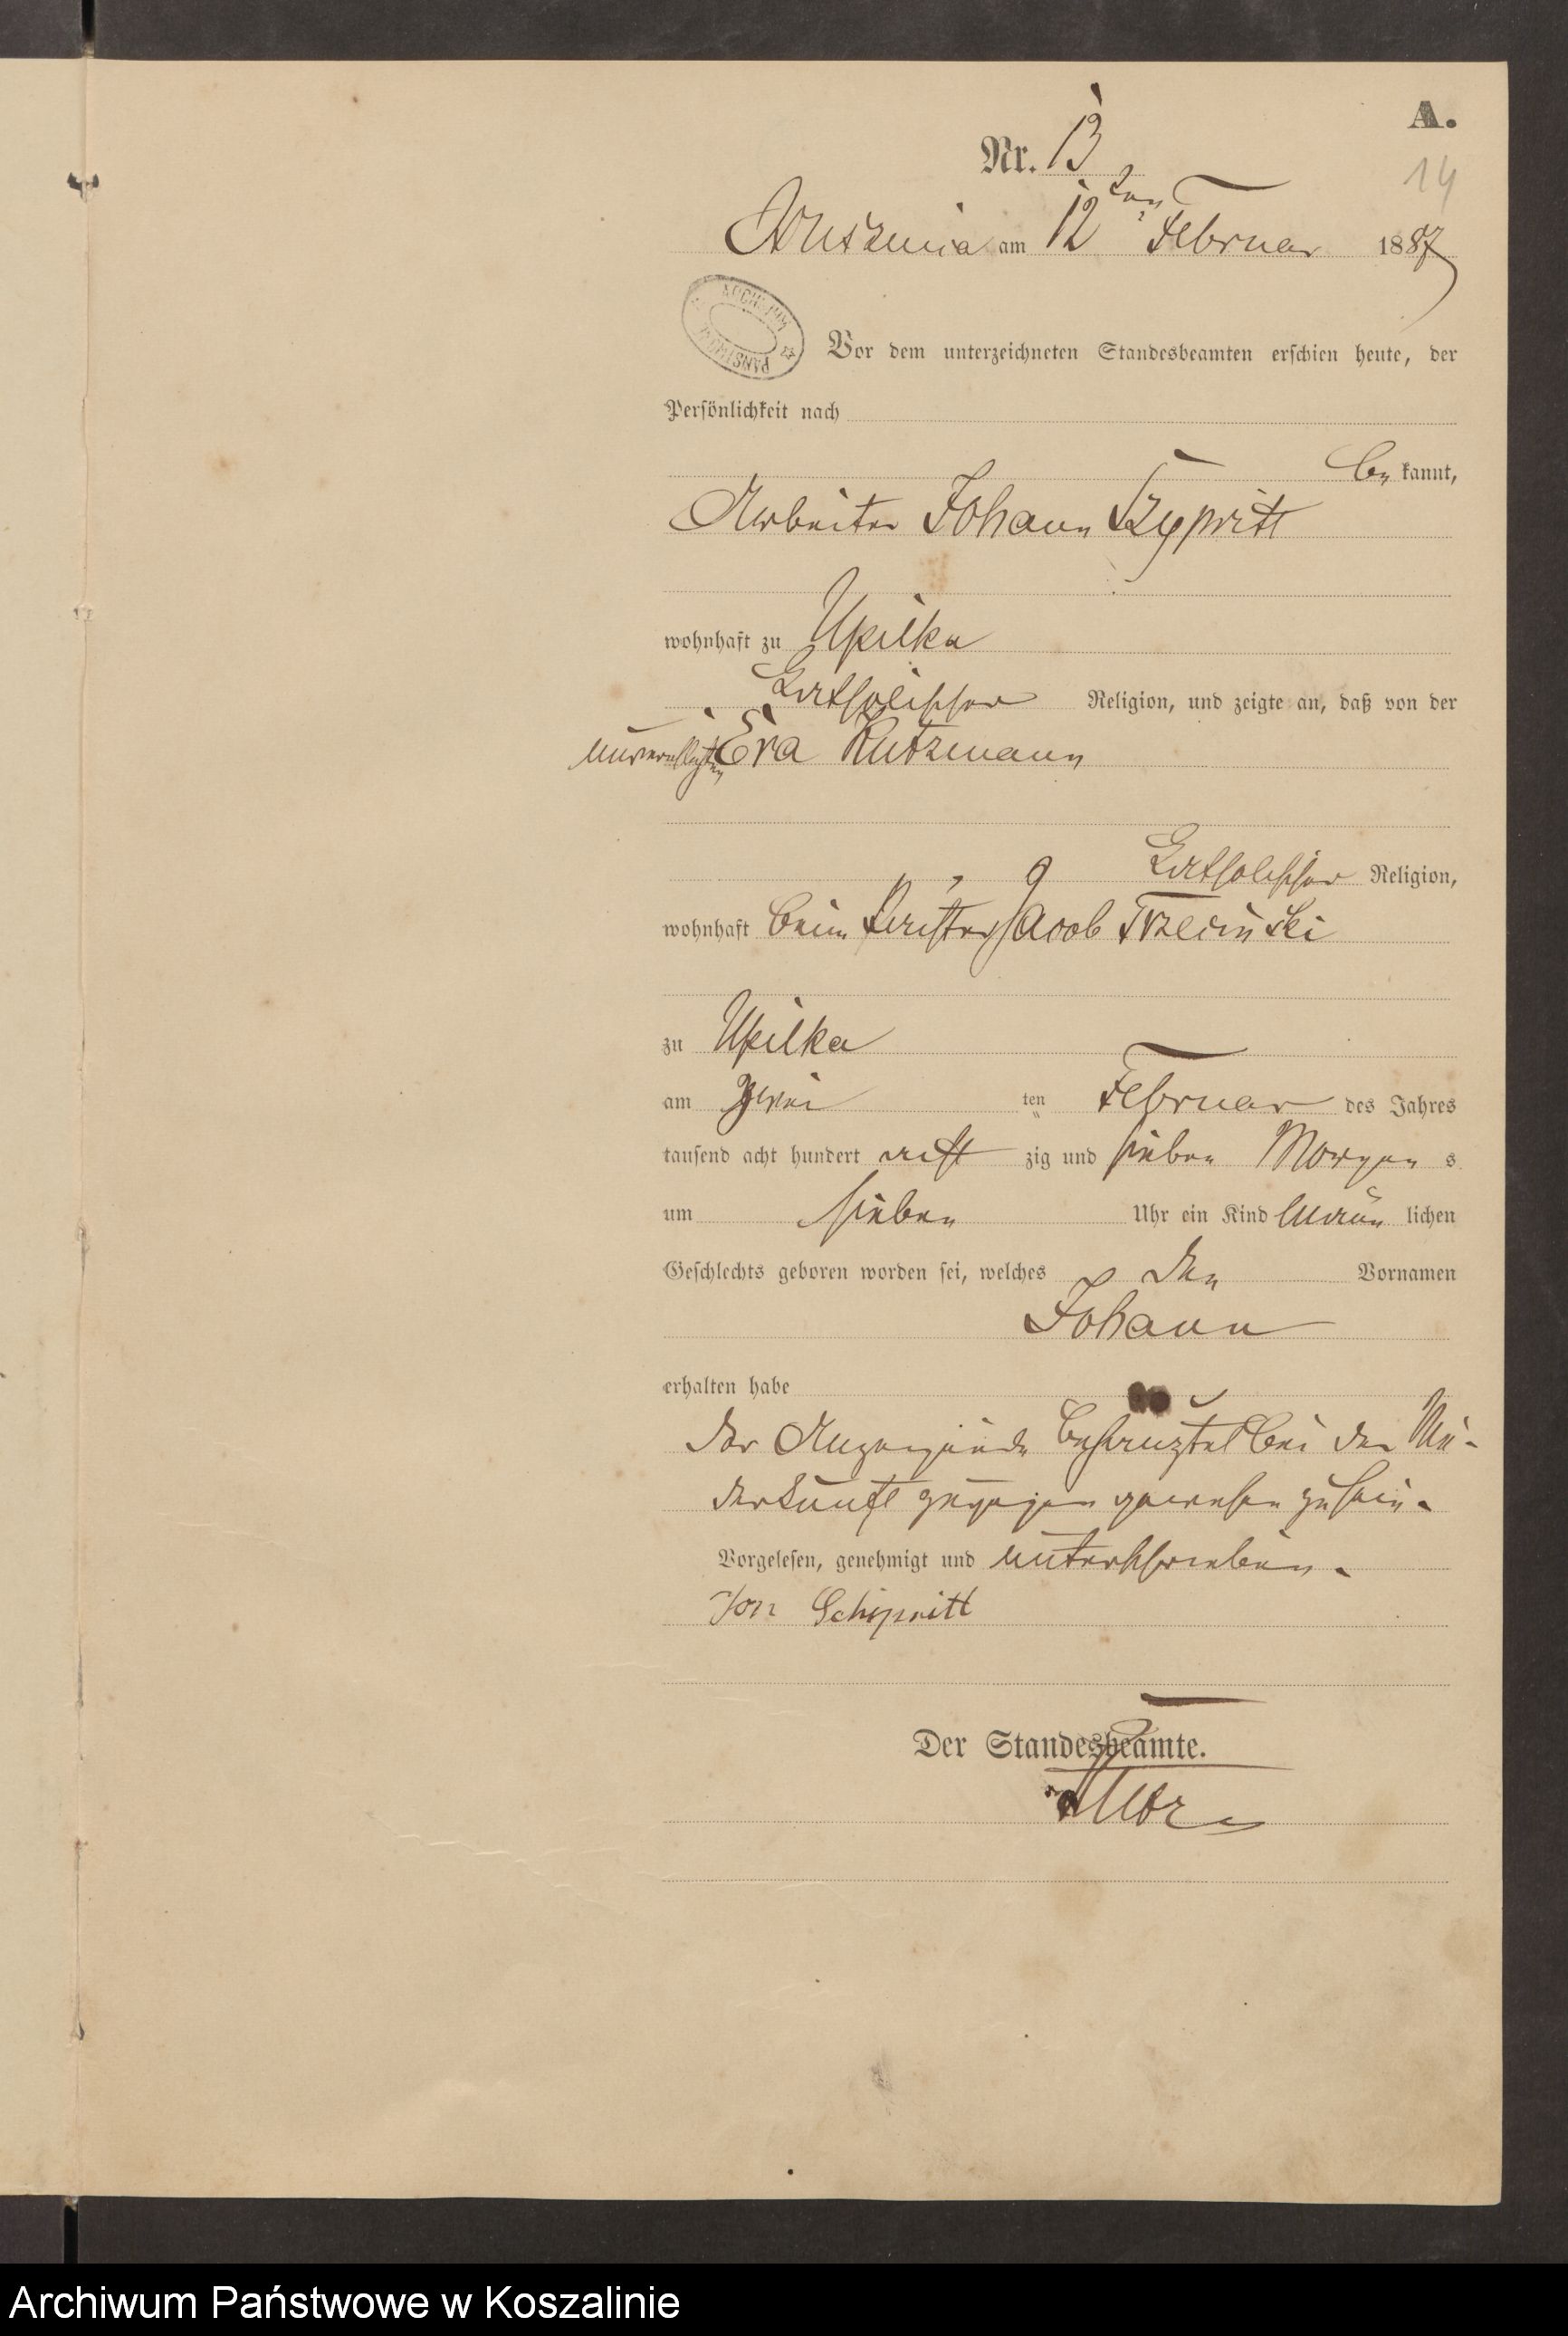 A.
Nr. 13
14
am 12ten Februar 1887
ARCHIWUM PAŃSTWOWE
Vor dem unterzeichneten Standesbeamten erschien heute, der
Persönlichkeit nach
be kannt,
Arbeiter Johann Szypritt
wohnhaft zu Upilka
katholischer Religion, und zeigte an, daß von der
unverehelichten Eva Kutzmann
katholischer Religion,
wohnhaft beim Jacob Trzecinski
zu Upilka
am zwei ten Februar des Jahres
tausend acht hundert acht zig und sieben Morgen s
um sieben Uhr ein Kind männ lichen
Geschlechts geboren worden sei, welches den Vornamen
Johann
erhalten habe
der Anzeigende bei der Nie-
derkunft zugegen gewesen zu sein.
Vorgelesen, genehmigt und unterschrieben.
Jon Schipritt
Der Standesbeamte.
Archiwum Państwowe w Koszalinie